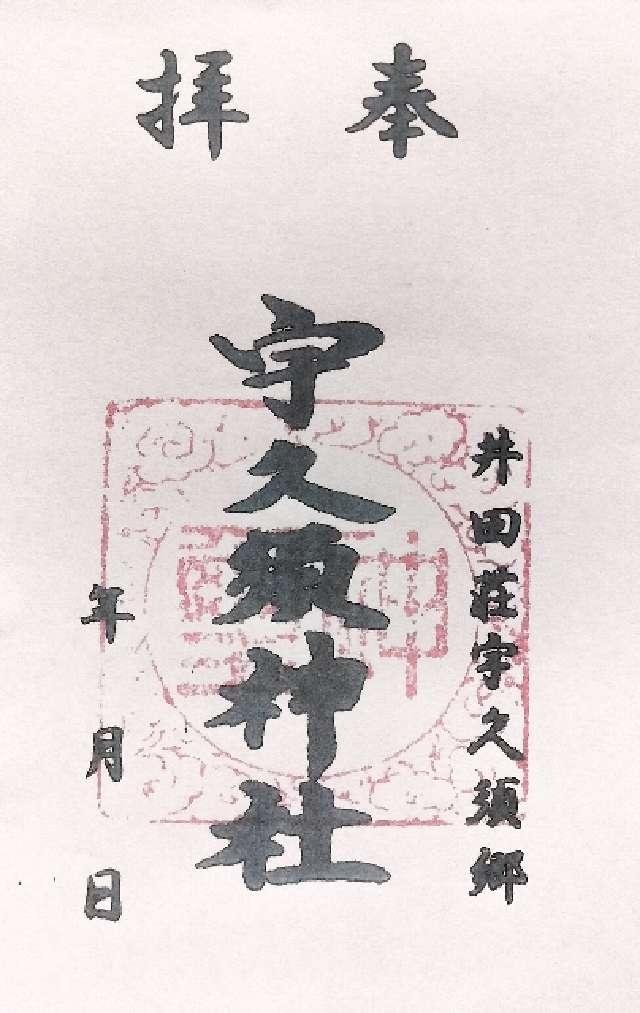 奉拝
井田荘宇久須郷
宇久須神社
年月日